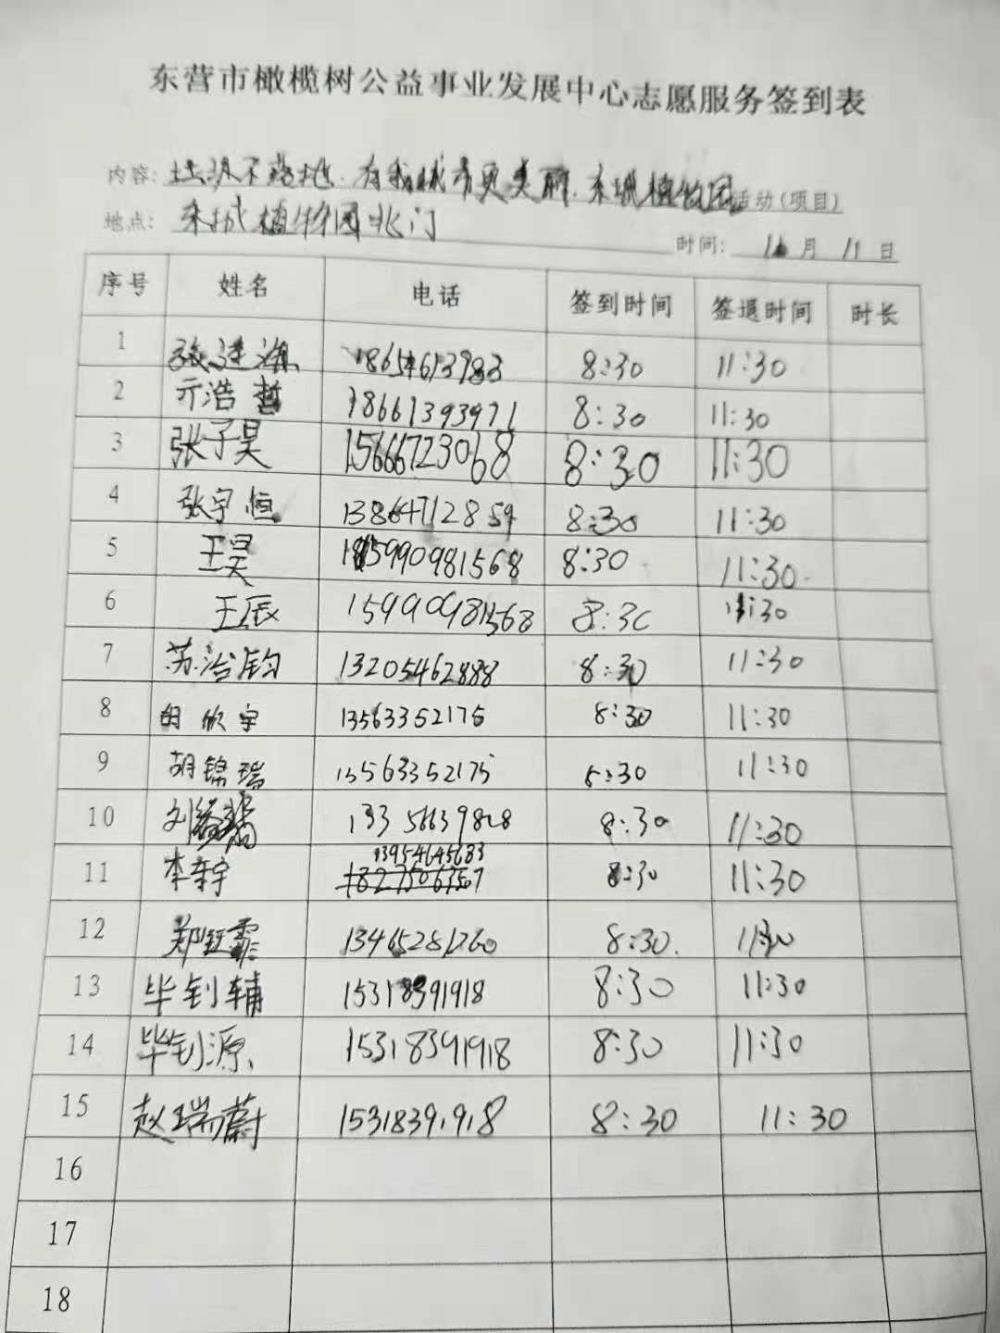 东营市橄榄树公益事业发展中心志愿服务签到表
内容: 垃圾不落地.有我城市更美丽.东城植物园活动(项目)
地点: 东城植物园北门
时间: 11月11日
序号 姓名 电话 签到时间 签退时间 时长
1 张 18654613983 8:30 11:30
2 亓浩哲 18661393971 8:30 11:30
3 张子昊 15666723068 8:30 11:30
4 张宇恒 13864712859 8:30 11:30
5 王昊 15990981568 8:30 11:30
6 王辰 15990981568 8:30 11:30
7 苏治钧 13205462888 8:30 11:30
8 胡欣宇 13563352175 8:30 11:30
9 胡锦瑞 13563352175 8:30 11:30
10 刘 13356639828 8:30 11:30
13954645683
11 李宇 18275063567 8:30 11:30
12 郑钰霏 13465281760 8:30. 11:30
13 毕钊辅 15318391918 8:30 11:30
14 毕钊源 15318391918 8:30 11:30
15 赵瑞蔚 15318391918 8:30 11:30
16
17
18